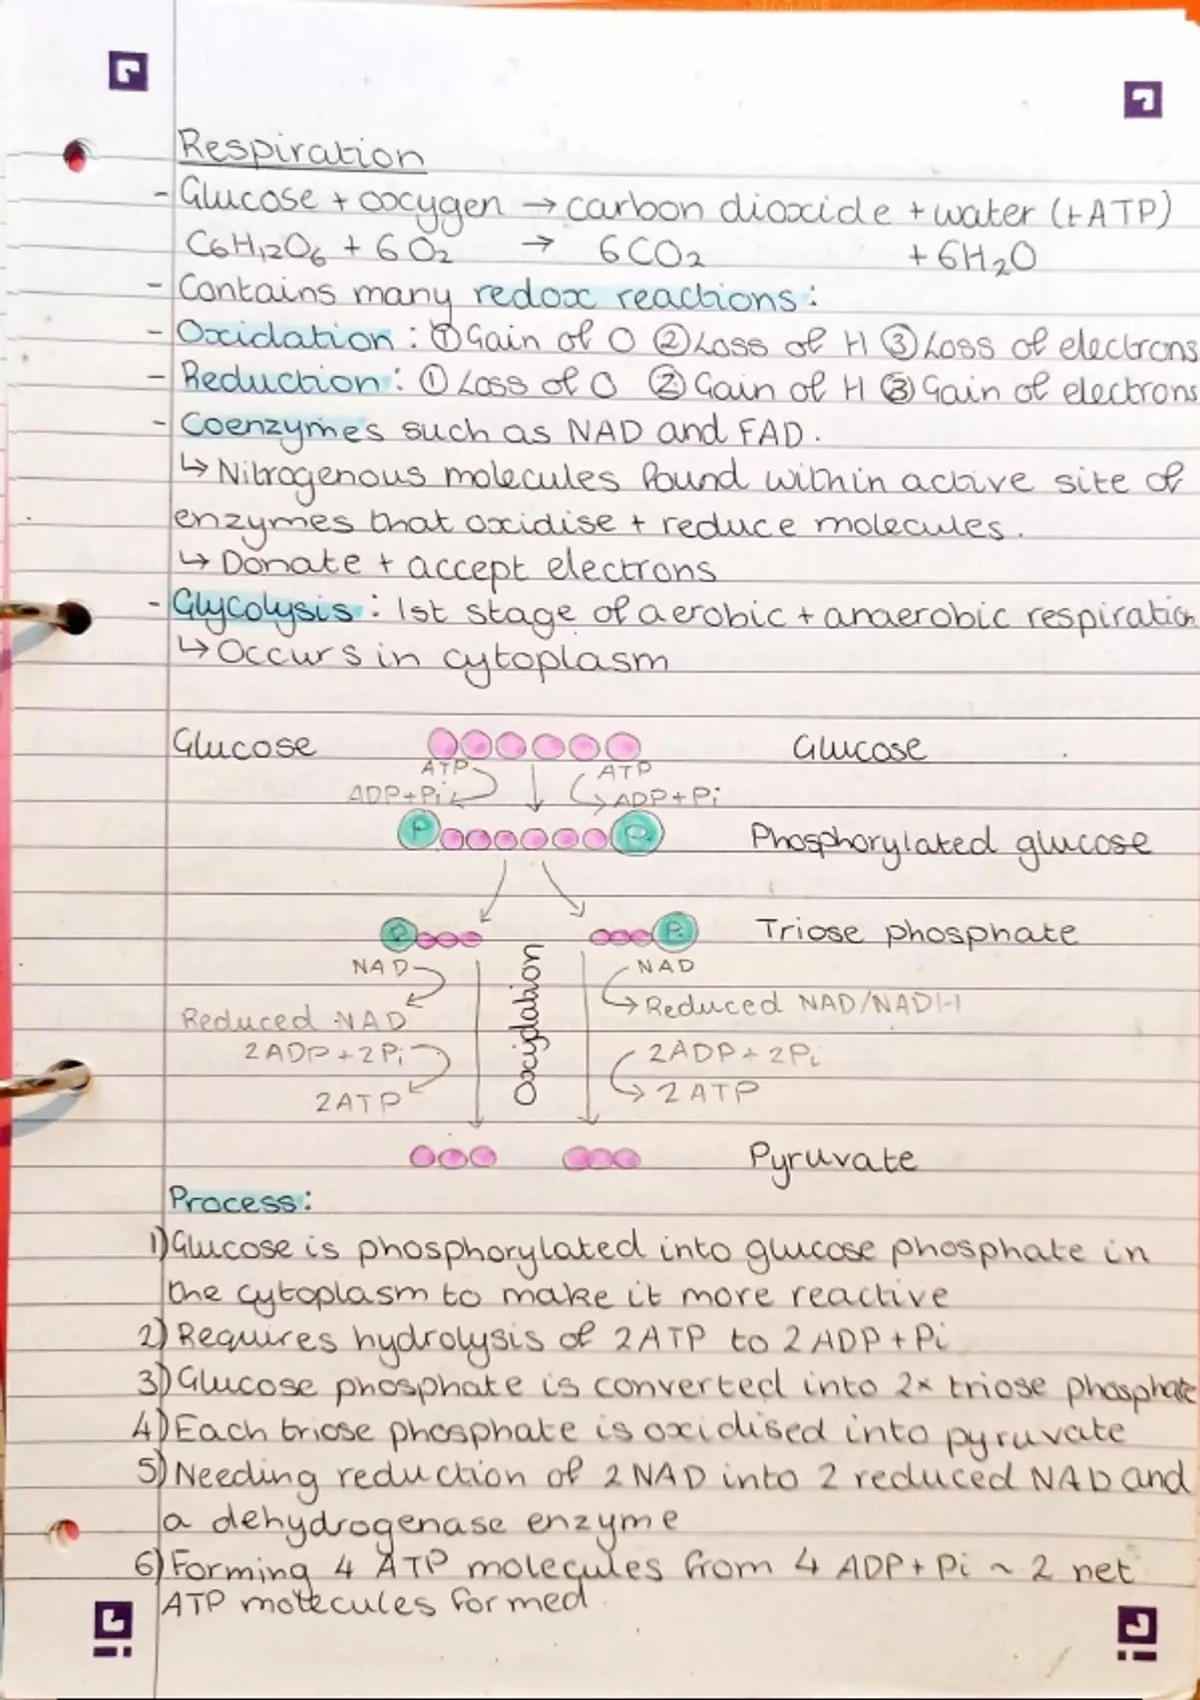 Respiration
- Glucose + oxygen → carbon dioxide + water (+ATP)
C6H12O6 + 6O2 → 6CO2 + 6H2O
- Contains many redox reactions:
- Oxidation: ① Gain of O ② Loss of H ③ Loss of electrons
- Reduction: ① Loss of O ② Gain of H ③ Gain of electrons
- Coenzymes such as NAD and FAD.
↳ Nitrogenous molecules found within active site of
enzymes that oxidise + reduce molecules.
↳ Donate + accept electrons
- Glycolysis: 1st stage of aerobic + anaerobic respiration
↳ Occurs in cytoplasm
Glucose Glucose
ATP ATP
ADP+Pi ADP+Pi
P Pi Phosphorylated glucose
P Pi Triose phosphate
NAD NAD
Oxidation
Reduced NAD Reduced NAD/NADH
2ADP+2Pi 2ADP+2Pi
2ATP 2ATP
Pyruvate
Process:
1) Glucose is phosphorylated into glucose phosphate in
the cytoplasm to make it more reactive
2) Requires hydrolysis of 2ATP to 2ADP+Pi
3) Glucose phosphate is converted into 2x triose phosphate
4) Each triose phosphate is oxidised into pyruvate
5) Needing reduction of 2NAD into 2 reduced NAD and
a dehydrogenase enzyme
6) Forming 4 ATP molecules from 4 ADP+Pi ~ 2 net
ATP molecules formed